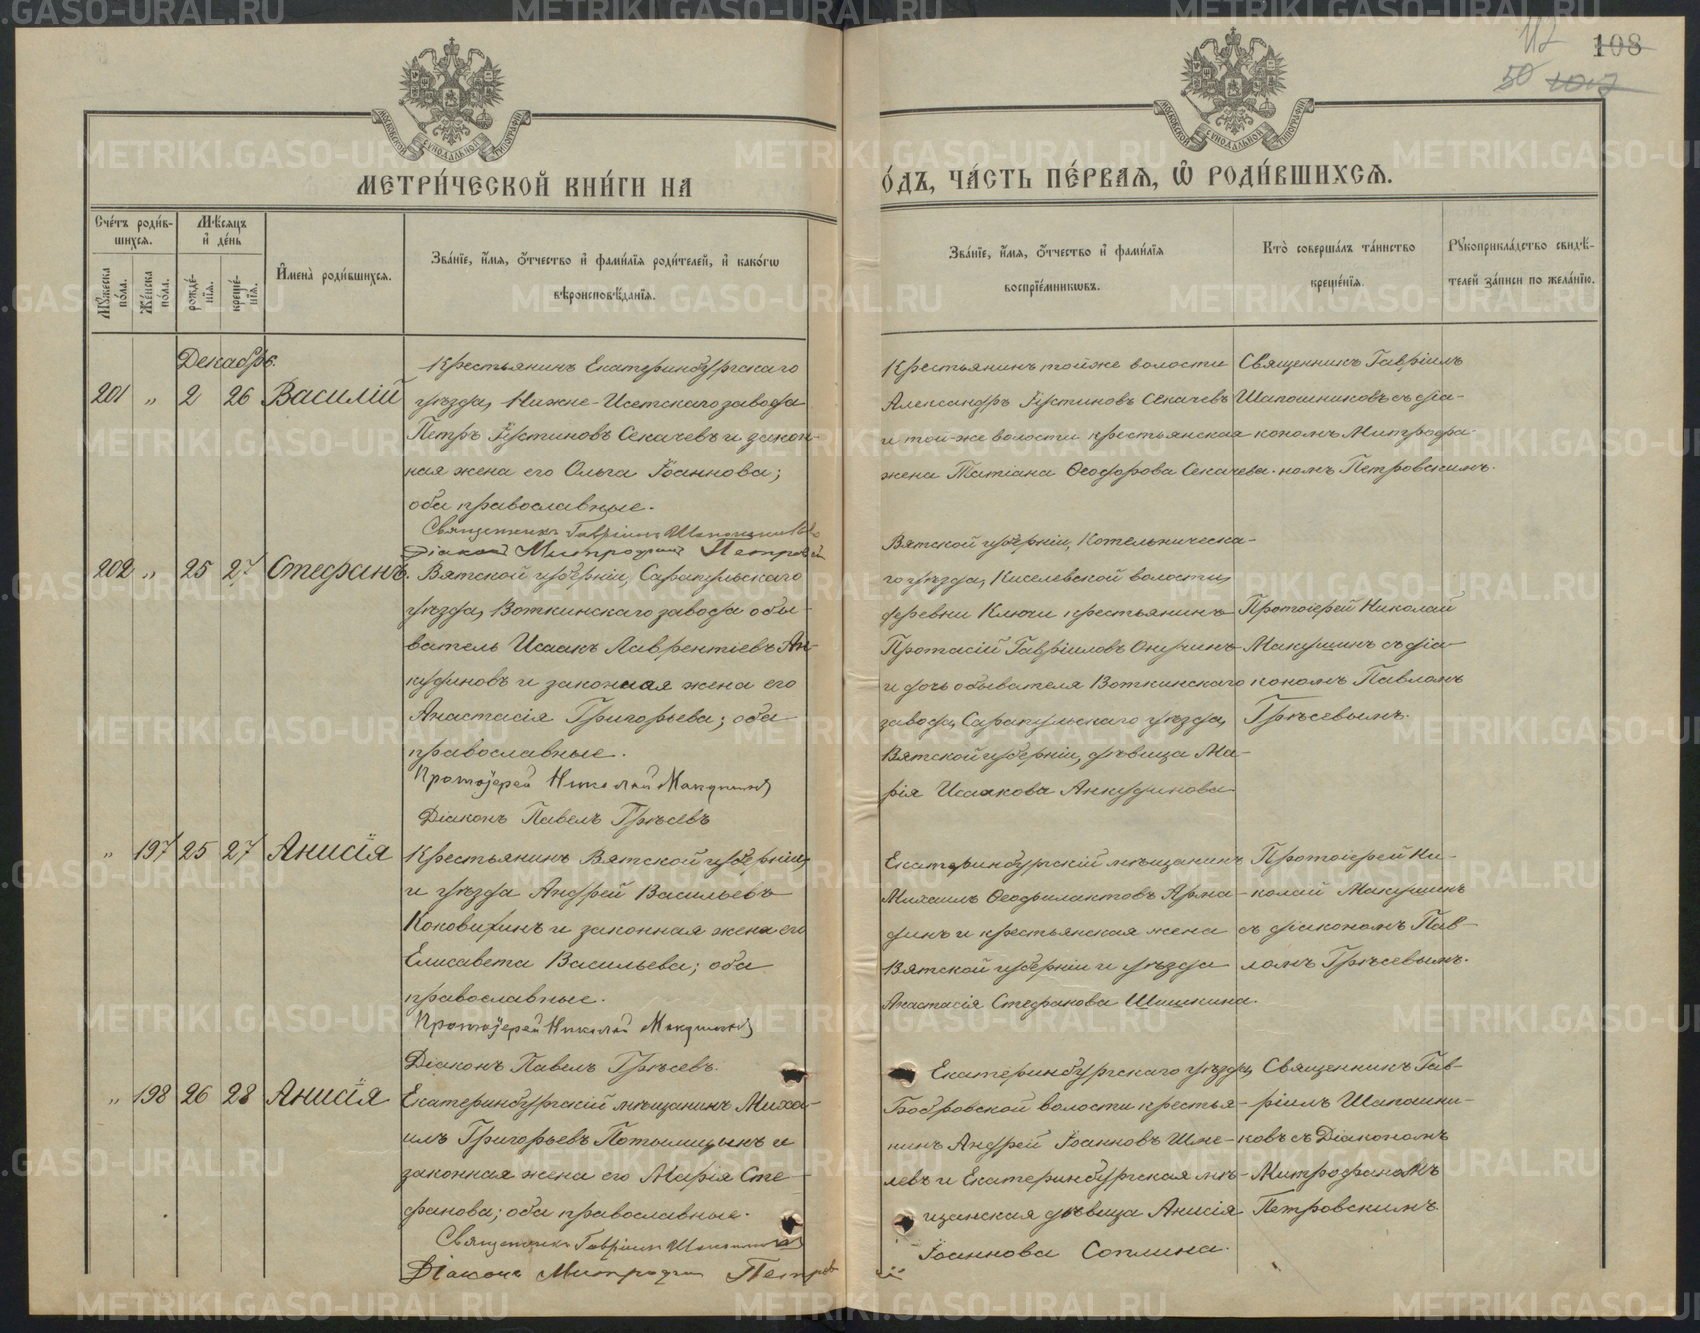 METRIKI.GASO-URAL.RU
117
108
50 1017
МОСКОВСКОЙ СѴНОДАЛЬНОЙ ТИПОГРАФІИ
МОСКОВСКОЙ СѴНОДАЛЬНОЙ ТИПОГРАФІИ
МЕТРИ́ЧЕСКОЙ КНИ́ГИ НА
О́ДЪ, ЧА́СТЬ ПЕ́РВАѦ, Ѡ҆ РОДИ́ВШИХСѦ.
Сче́тъ роди́в-
шихсѧ.
Мꙋ́жеска по́ла.
Же́нска по́ла.
Мѣ́сѧцъ
и҆ де́нь
рожде́-
нїѧ.
креще́-
нїѧ.
И҆мена̀ роди́вшихсѧ.
Зва́нїе, и҆́мѧ, ѻ҆́тчество и҆ фами́лїѧ роди́телей, и҆ како́гѡ
вѣроисповѣ́данїѧ.
Зва́нїе, и҆́мѧ, ѻ҆́тчество и҆ фами́лїѧ
воспрїе́мникѡвъ.
Кто̀ соверша́лъ та́инство
креще́нїѧ.
Рꙋкоприкла́дство свидѣ́-
телей за́писи по жела́нїю.
Декабрь.
201 „ 2 26 Василій
Крестьянинъ Екатеринбургскаго
уѣзда, Нижне-Исетскаго завода
Петръ Іустиновъ Секачевъ и закон-
ная жена его Ольга Іоаннова;
оба православные.
Священникъ Гавріилъ Шапошниковъ
Діаконъ Митрофанъ Петровскій
Крестьянинъ той же волости
Александръ Іустиновъ Секачевъ
и той-же волости крестьянская
жена Татіана Ѳеодорова Секачева.
Священникъ Гавріилъ
Шапошниковъ съ діа-
кономъ Митрофа-
номъ Петровскимъ.
202 „ 25 27 Стефанъ.
Вятской губерніи, Сарапульскаго
уѣзда, Воткинскаго завода обы-
ватель Исаакъ Лаврентіевъ Ан-
кудиновъ и законная жена его
Анастасія Григорьева; оба
православные.
Протоіерей Николай Макушинъ
Діаконъ Павелъ Грѣсевъ
Вятской губерніи, Котельническа-
го уѣзда, Киселевской волости,
деревни Ключи крестьянинъ
Протасій Гавріиловъ Онучинъ
и дочь обывателя Воткинскаго
завода, Сарапульскаго уѣзда,
Вятской губерніи, дѣвица Ма-
рія Исаакова Анкудинова
Протоіерей Николай
Макушинъ съ діа-
кономъ Павломъ
Грѣсевымъ.
„ 197 25 27 Анисія
Крестьянинъ Вятской губерніи,
и уѣзда Андрей Васильевъ
Коковихинъ и законная жена его
Елисавета Васильева; оба
православные.
Протоіерей Николай Макушинъ
Діаконъ Павелъ Грѣсевъ.
Екатеринбургскій мѣщанинъ
Михаилъ Ѳеофилактовъ Арма-
динъ и крестьянская жена
Вятской губерніи и уѣзда
Анастасія Стефанова Шишкина.
Протоіерей Ни-
колай Макушинъ
съ діакономъ Пав-
ломъ Грѣсевымъ.
„ 198 26 28 Анисія
Екатеринбургскій мѣщанинъ Миха-
илъ Григорьевъ Потылицынъ и
законная жена его Марія Сте-
фанова; оба православные.
Священникъ Гавріилъ Шапошниковъ
Діаконъ Митрофанъ Петров
Екатеринбургскаго уѣзда,
Бобровской волости крестья-
нинъ Андрей Іоанновъ Шме-
левъ и Екатеринбургская мѣ-
щанская дѣвица Анисія
Іоаннова Соплина.
Священникъ Гав-
ріилъ Шапошни-
ковъ съ Діакономъ
Митрофаномъ
Петровскимъ.